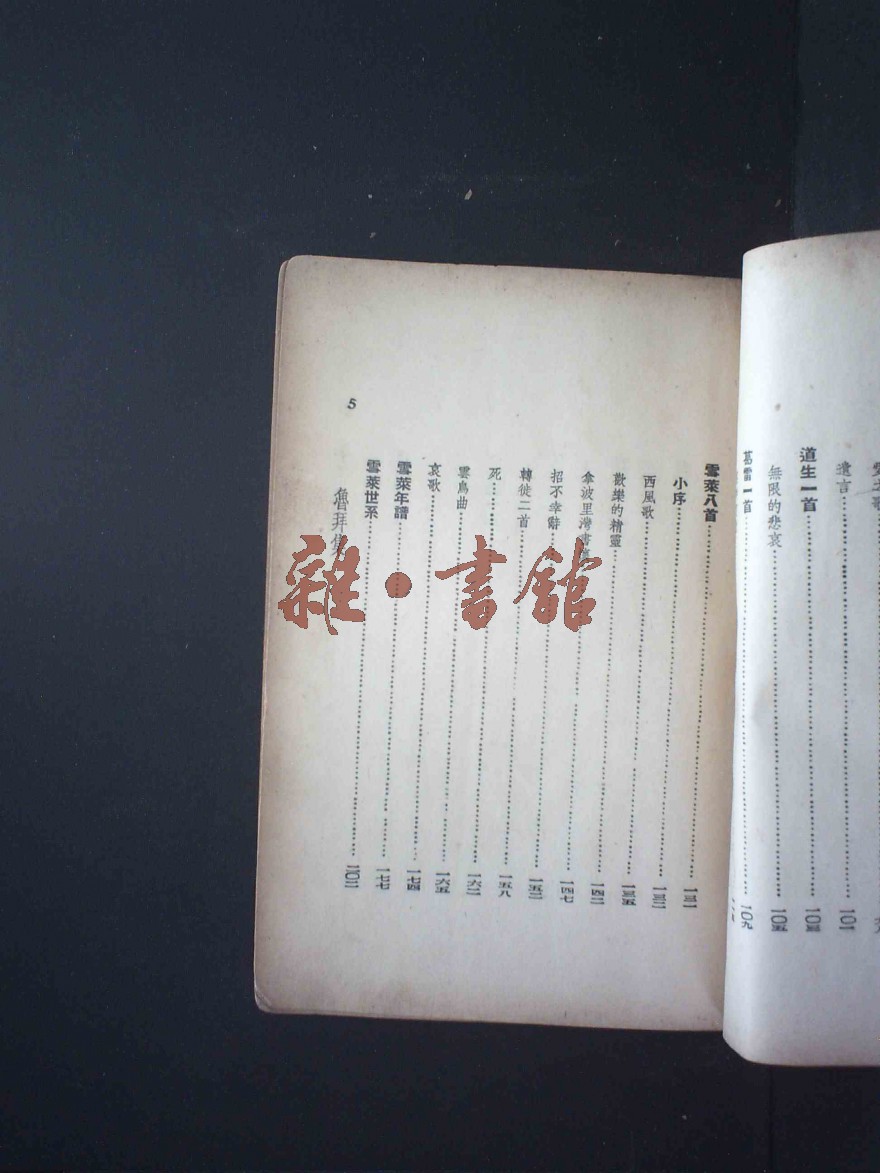 遺言……一〇一
道生一首……一〇三
無限的悲哀……一〇五
葛雷一首……一〇九
雪萊八首……一三一
小序……一三二
西風歌……一三五
歡樂的精靈……一四二
拿波里灣書……一四七
招不幸辭……一五二
轉徒二首……一五八
死……一六二
雲鳥曲……一六五
哀歌……一七四
雪萊年譜……一七七
雪萊世系……二〇二
魯拜集
5
雜·書館